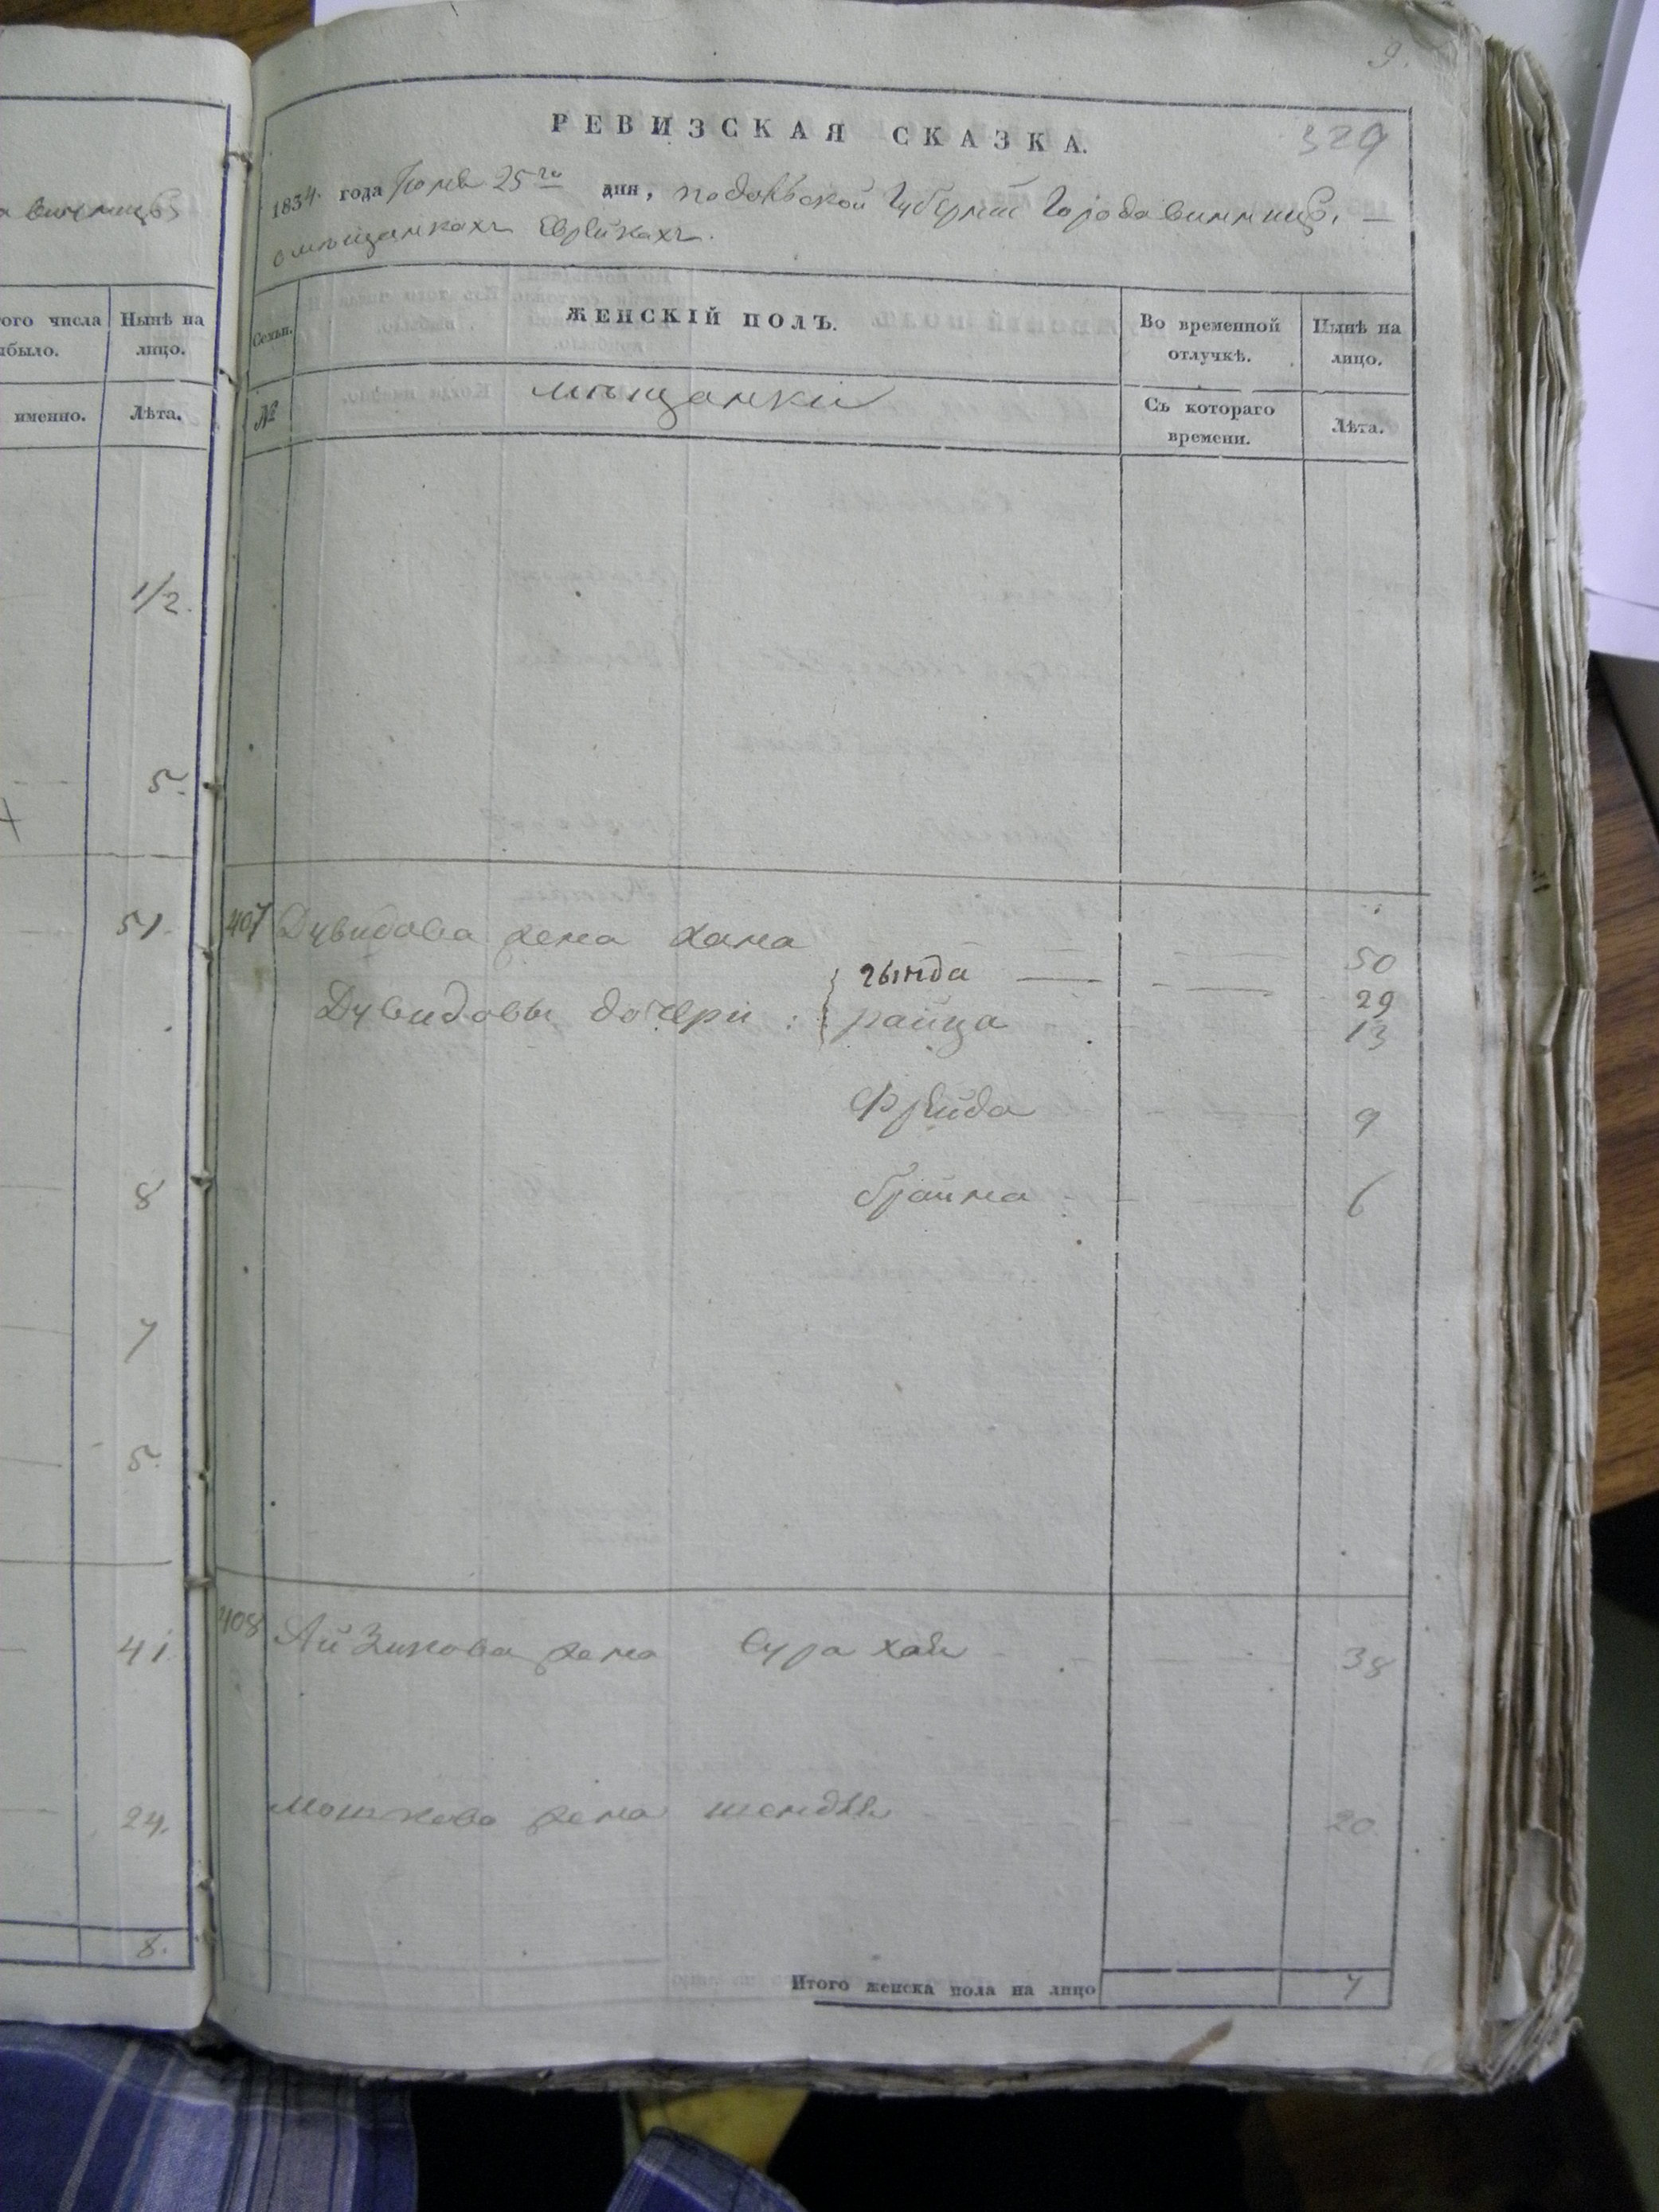 того числа
ыбыло.
Нынѣ на
лицо.
именно.
Лѣта.
1/2.
5.
51.
8
7
5.
41
24.
8.
9.
329
РЕВИЗСКАЯ СКАЗКА.
1834. года 25го дня, подольской Губерніи Города винницы, —
о мѣщанкахъ Еврейкахъ.
Семьи.
ЖЕНСКІЙ ПОЛЪ.
Во временной
отлучкѣ.
Нынѣ на
лицо.
№
мѣщанки
Съ котораго
времени.
Лѣта.
407 Дувидова жена хана 50
гында 29
Дувидовы дочери : райца 13
Фрейда 9
брайна 6
408 Айзикова жена Сура хая 38
мошкова жена шендля 20
Итого женска пола на лицо 7